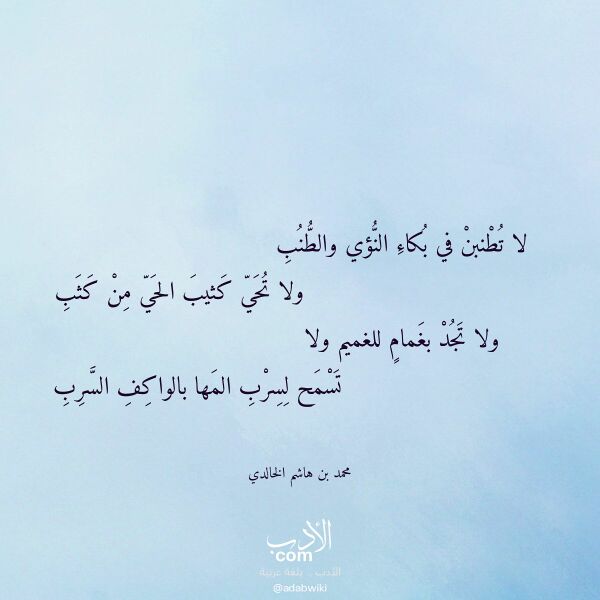 لا تُطْنبنْ في بُكاءِ النُّؤي والطُّنُبِ
ولا تُحَيّ كَثيبَ الحَيّ مِنْ كَثَبِ
ولا تَجُدْ بغَمامٍ للغميم ولا
تَسْمَح لِسِرْبِ المَها بالواكِفِ السَّرِبِ
محمد بن هاشم الخالدي
الأدب
com
الأدب .. بلغة عربية
@adabwiki